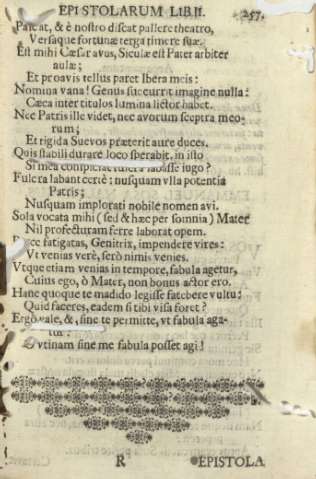 EPISTOLARUM LIB. II. 257.
Pareat, & è nostro discat pallere theatro,
Versaque fortunæ terga timere suæ.
Est mihi Cæsar avus, Siculæ est Pater arbiter
aulæ;
Et proavis tellus paret Ibera meis:
Nomina vana! Genus succurrit imagine nulla:
Cæca inter titulos lumina lictor habet.
Nec Patris ille videt, nec avorum sceptra meo-
rum;
Et rigida Suevos præterit aure duces.
Quis stabili durare loco sperabit, in isto
Si mea conspiciat fulcra labasse iugo?
Fulcra labant certè: nusquam vlla potentia
Patris;
Nusquam implorati nobile nomen avi.
Sola vocata mihi (sed & hæc per somnia) Mater
Nil profecturam ferre laborat opem.
Parce fatigatas, Genitrix, impendere vires:
Vt venias verè, serò nimis venies.
Vtque etiam venias in tempore, fabula agetur,
Cuius ego, ò Mater, non bonus actor ero.
Hanc quoque te madido legisse fatebere vultu:
Quid faceres, eadem si tibi visa foret?
Ergò vale, &, sine te permitte, vt fabula aga-
tur:
O vtinam sine me fabula posset agi!
R EPISTOLA